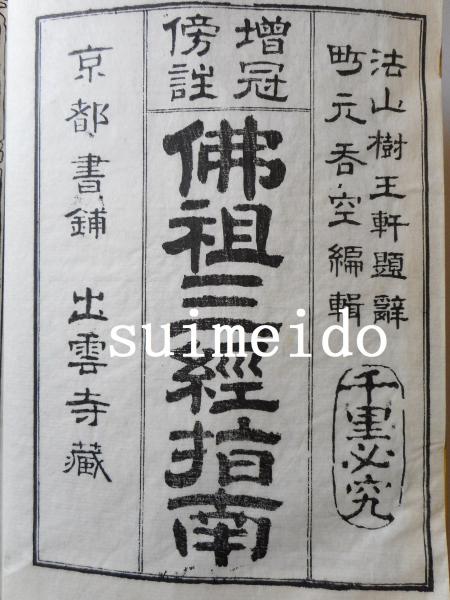 法山樹王軒題辭
町元呑空編輯
千里必究
增冠
傍註
佛祖三經指南
京都書鋪 出雲寺藏
suimeido